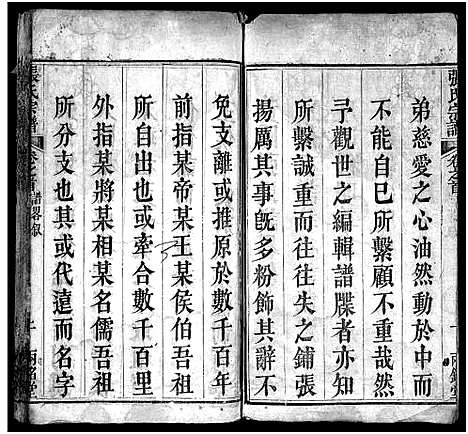 張氏宗譜
卷之首
弟慈愛之心油然動於中而
不能自已所繫顧不重哉然
予觀世之編輯譜牒者亦知
所繫誠重而往往失之鋪張
揚厲其事旣多粉飾其辭不
免支離或推原於數千百年
前指某帝某王某侯伯吾祖
所自出也或牽合數千百里
外指某將某相某名儒吾祖
所分支也其或代遠而名字
張氏宗譜
卷之首
譜畧叙